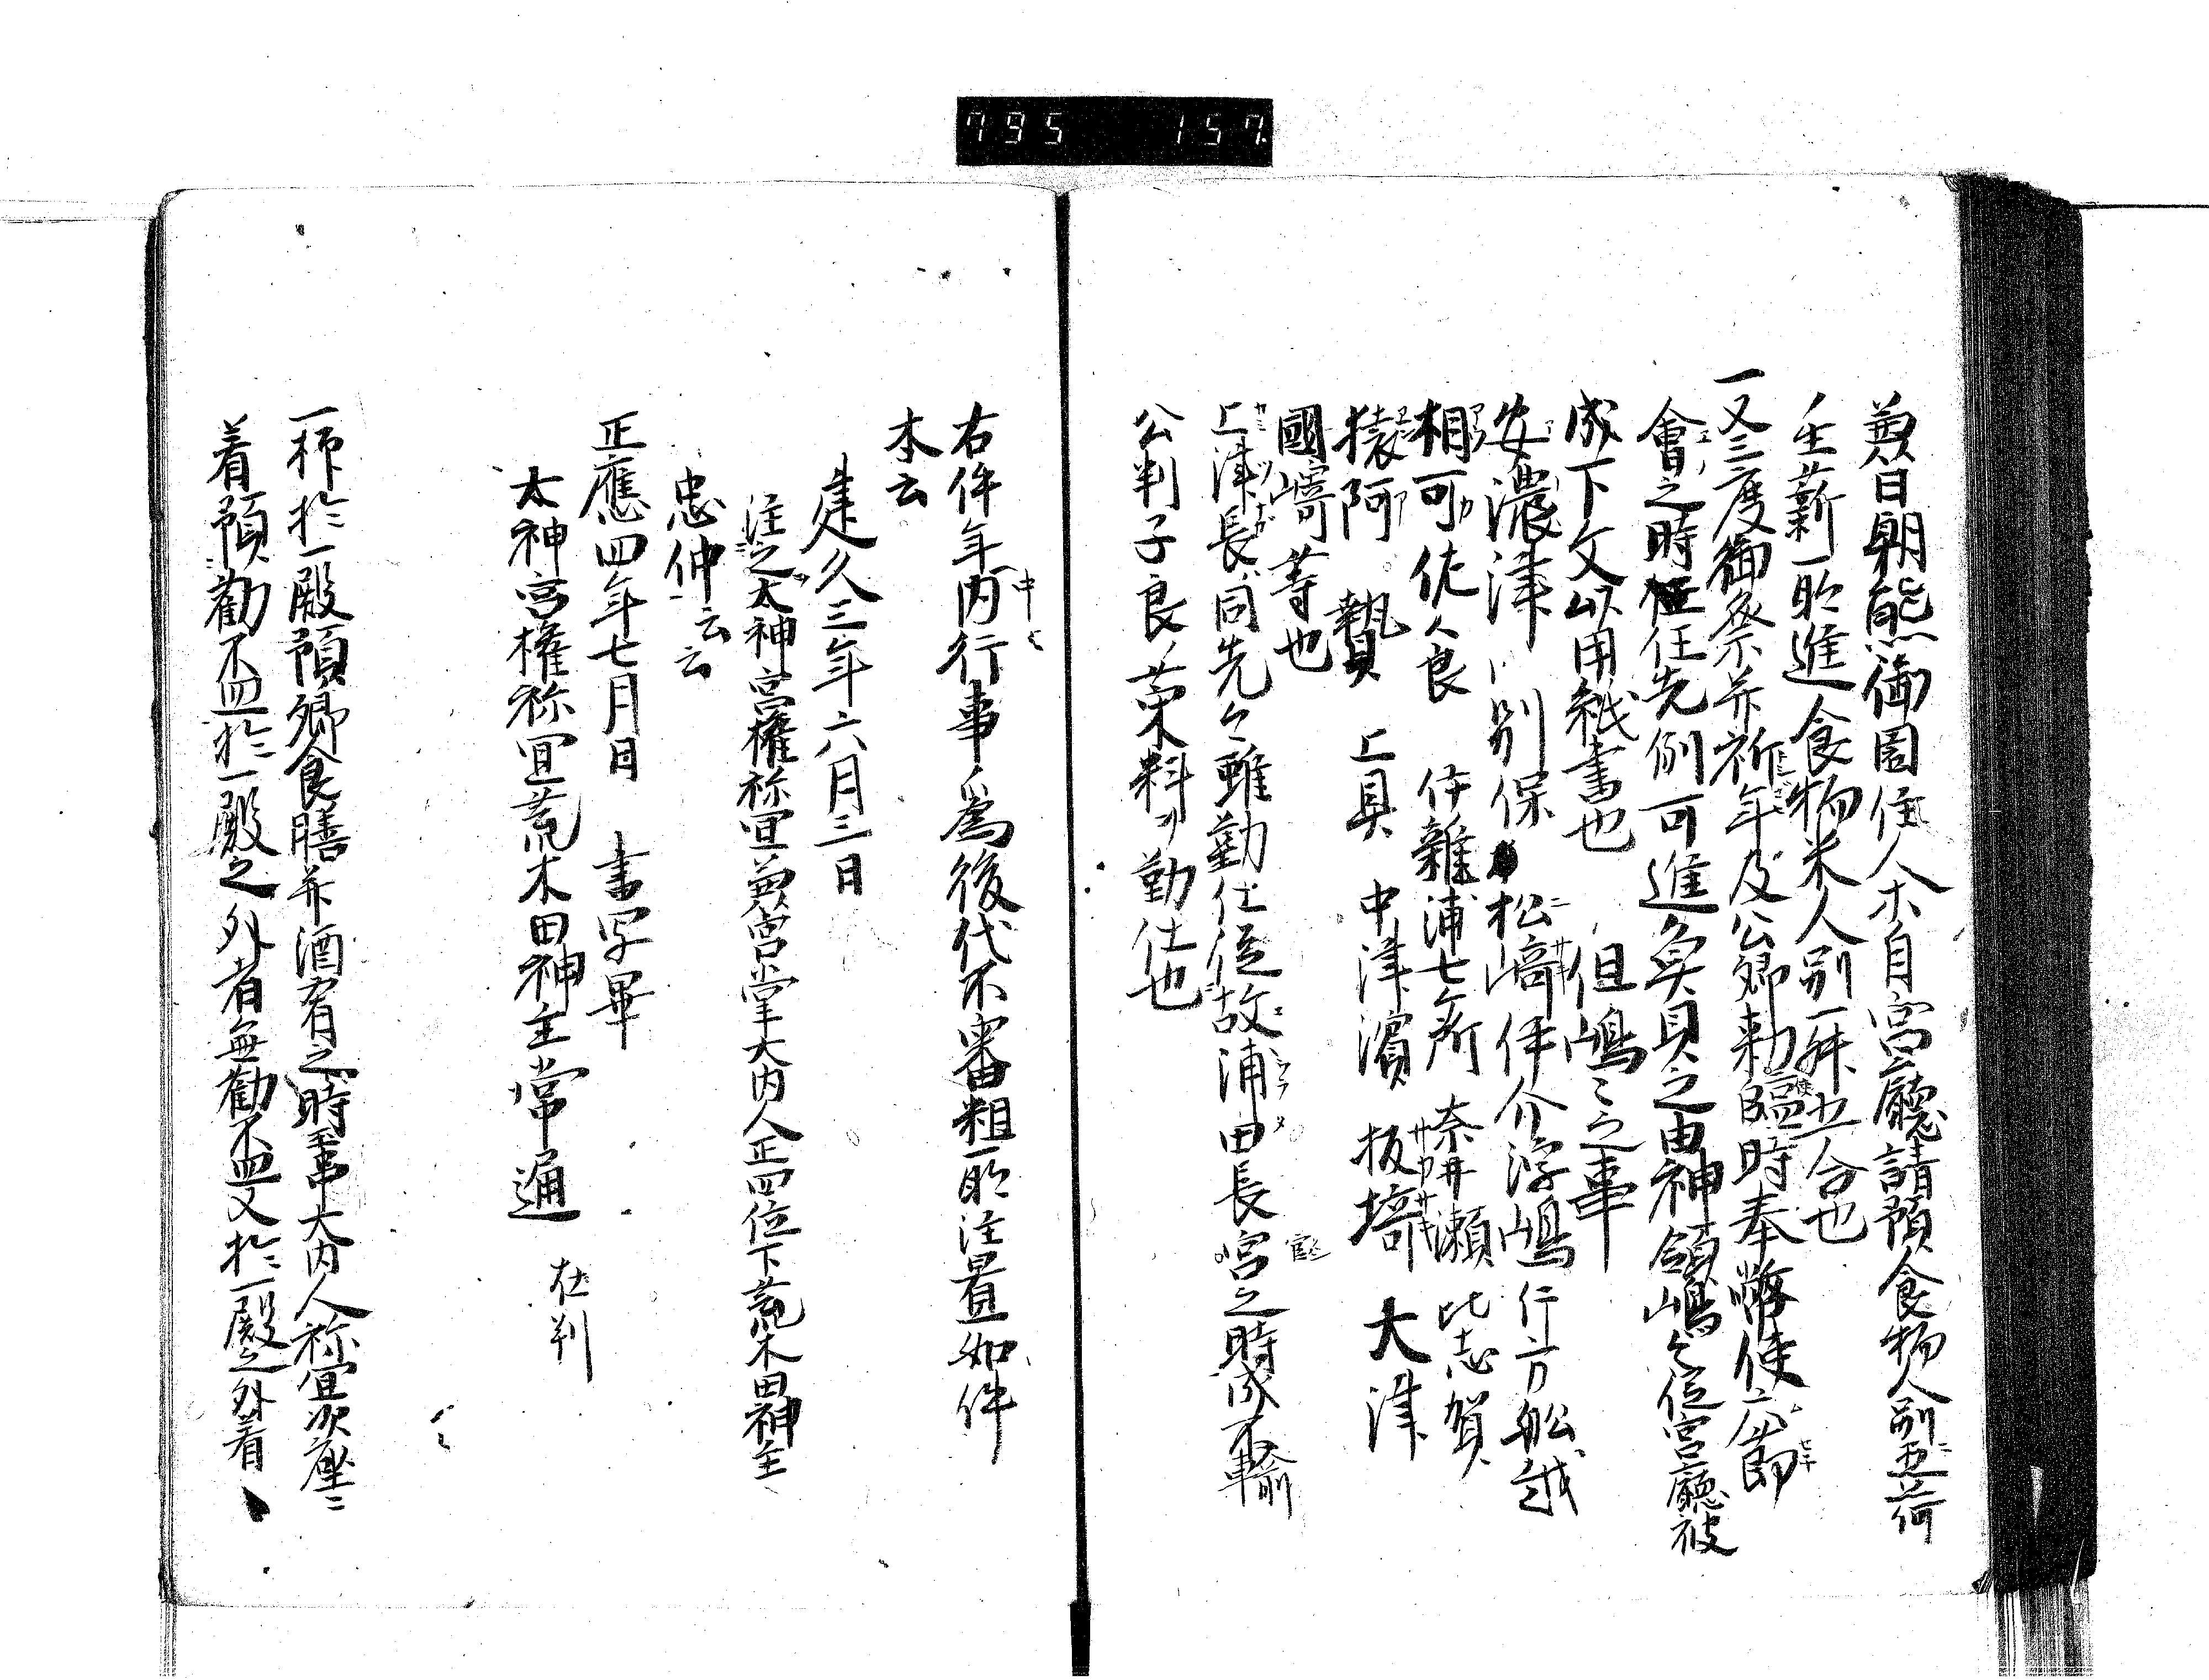 795 157
兼日朝熊御園住人ホ自宮廳請預食物人別五荷
生薪一所進食物米人別一舛五合也
一又三度御祭并祈年及公卿勅使臨時奉幣使六箇
會之時任先例可進魚貝之由神領嶋々位宮廳被
成下文以用紙書也 但嶋々之事
安濃津 別保 松﨑 伴介浮嶋 行方 舩越
相可 佐々良 件雜浦七ケ所 奈井瀬 比志賀
猿阿 贄 上具 中津濱 坂﨑 大津
國﨑等也
上津長同先々雖勤仕従故浦田長官之時成不輸
公判子良菜料勤仕也
右件年内行事為後代不審粗所注置如件
本云
建久三年六月三日
注之太神宮權祢宜兼宮掌大内人正四位下荒木田神主
忠仲云云
正應四年七月日 書写畢
太神宮權祢宜荒木田神主常通 在判
一柿於一殿預饗食膳并酒肴之時事大内人祢宜次座ニ
着預勸盃於一殿之外者無勸盃又於一殿之外着